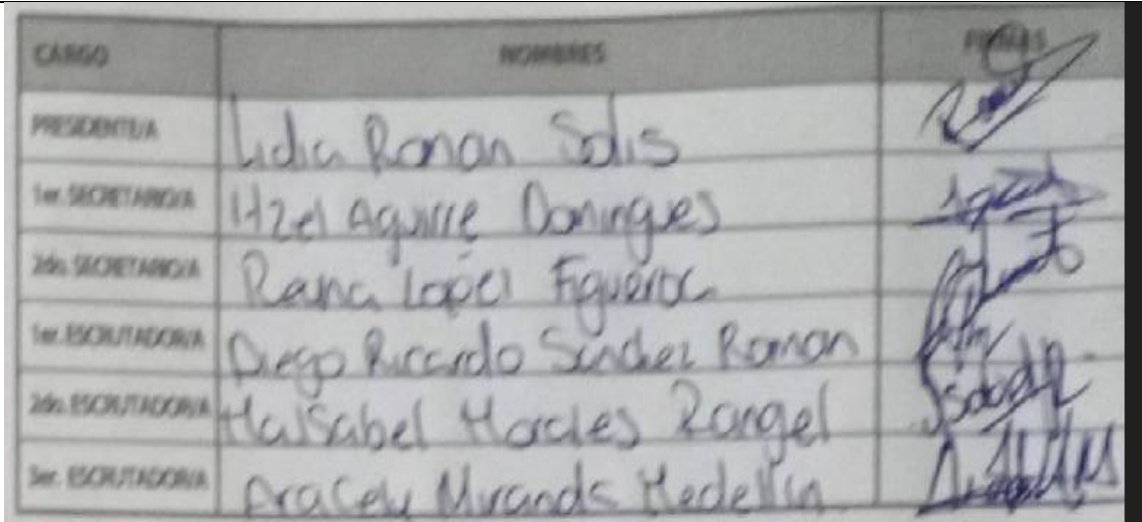 CARGO NOMBRES FIRMAS
PRESIDENTE/A Lidia Roman Solis
1er. SECRETARIO/A Itzel Aguirre Domingues
2do. SECRETARIO/A Reina Lopez Figueroa
1er. ESCRUTADOR/A Diego Ricardo Sanchez Roman
2do. ESCRUTADOR/A Ma Isabel Morales Rangel Isabel
3er. ESCRUTADOR/A Aracely Miranda Medellin